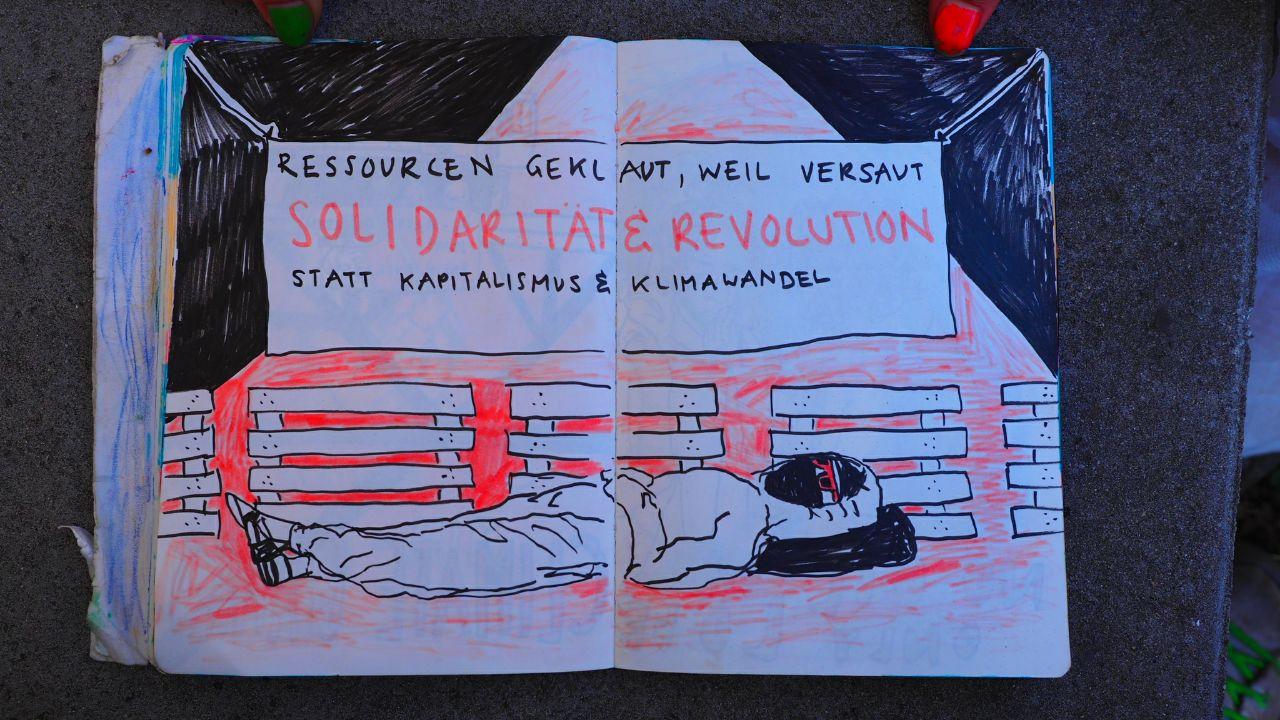 RESSOURCEN GEKLAUT, WEIL VERSAUT
SOLIDARITÄT & REVOLUTION
STATT KAPITALISMUS & KLIMAWANDEL